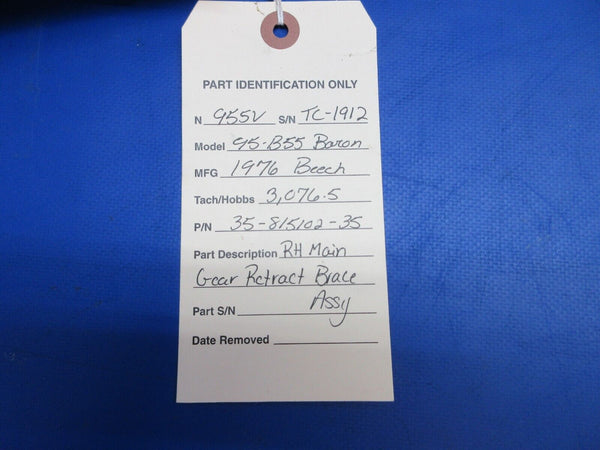 PART IDENTIFICATION ONLY
N 955V S/N TC-1912
Model 95-B55 Baron
MFG 1976 Beech
Tach/Hobbs 3,076.5
P/N 35-815102-35
Part Description RH Main
Gear Retract Brace
Assy
Part S/N
Date Removed